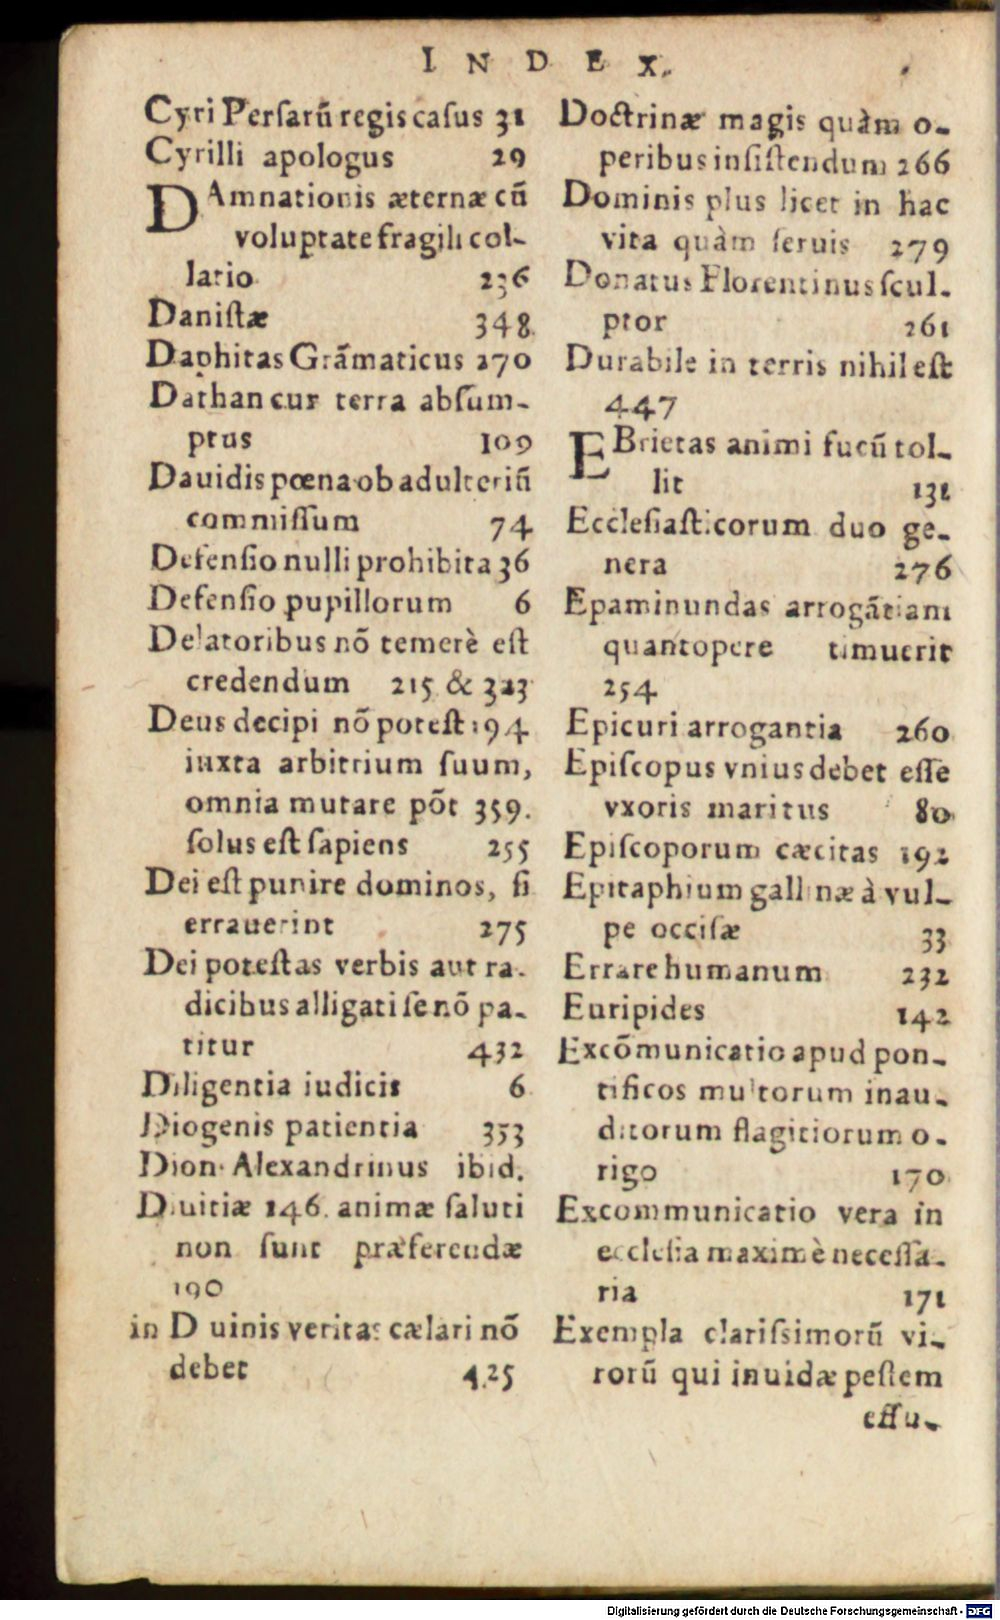 INDEX.
Cyri Persarũ regis casus 31
Cyrilli apologus 29
DAmnationis æternæ cũ
voluptate fragili col-
latio 236
Danistæ 348
Daphitas Grãmaticus 270
Dathan cur terra absum-
ptus 109
Dauidis pœna ob adulteriũ
commissum 74
Defensio nulli prohibita 36
Defensio pupillorum 6
Delatoribus nõ temerè est
credendum 215 & 323
Deus decipi nõ potest 194
iuxta arbitrium suum,
omnia mutare põt 359.
solus est sapiens 255
Dei est punire dominos, si
errauerint 275
Dei potestas verbis aut ra-
dicibus alligari se nõ pa-
titur 432
Diligentia iudicis 6
Diogenis patientia 353
Dion. Alexandrinus ibid.
Diuitiæ 146. animæ saluti
non sunt præferendæ
190
in Diuinis veritas cælari nõ
debet 425
Doctrinæ magis quàm o-
peribus insistendum 266
Dominis plus licet in hac
vita quàm seruis 279
Donatus Florentinus scul-
ptor 261
Durabile in terris nihil est
447
EBrietas animi fucũ tol-
lit 131
Ecclesiasticorum duo ge-
nera 276
Epaminundas arrogãtiam
quantopere timuerit
254
Epicuri arrogantia 260
Episcopus vnius debet esse
vxoris maritus 80
Episcoporum cæcitas 192
Epitaphium gallinæ à vul-
pe occisæ 33
Errare humanum 232
Euripides 142
Excõmunicatio apud pon-
tificos multorum inau-
ditorum flagitiorum o-
rigo 170
Excommunicatio vera in
ecclesia maximè necessa-
ria 171
Exempla clarissimorũ vi-
rorũ qui inuidæ pestem
effu-
Digitalisierung gefördert durch die Deutsche Forschungsgemeinschaft - DFG